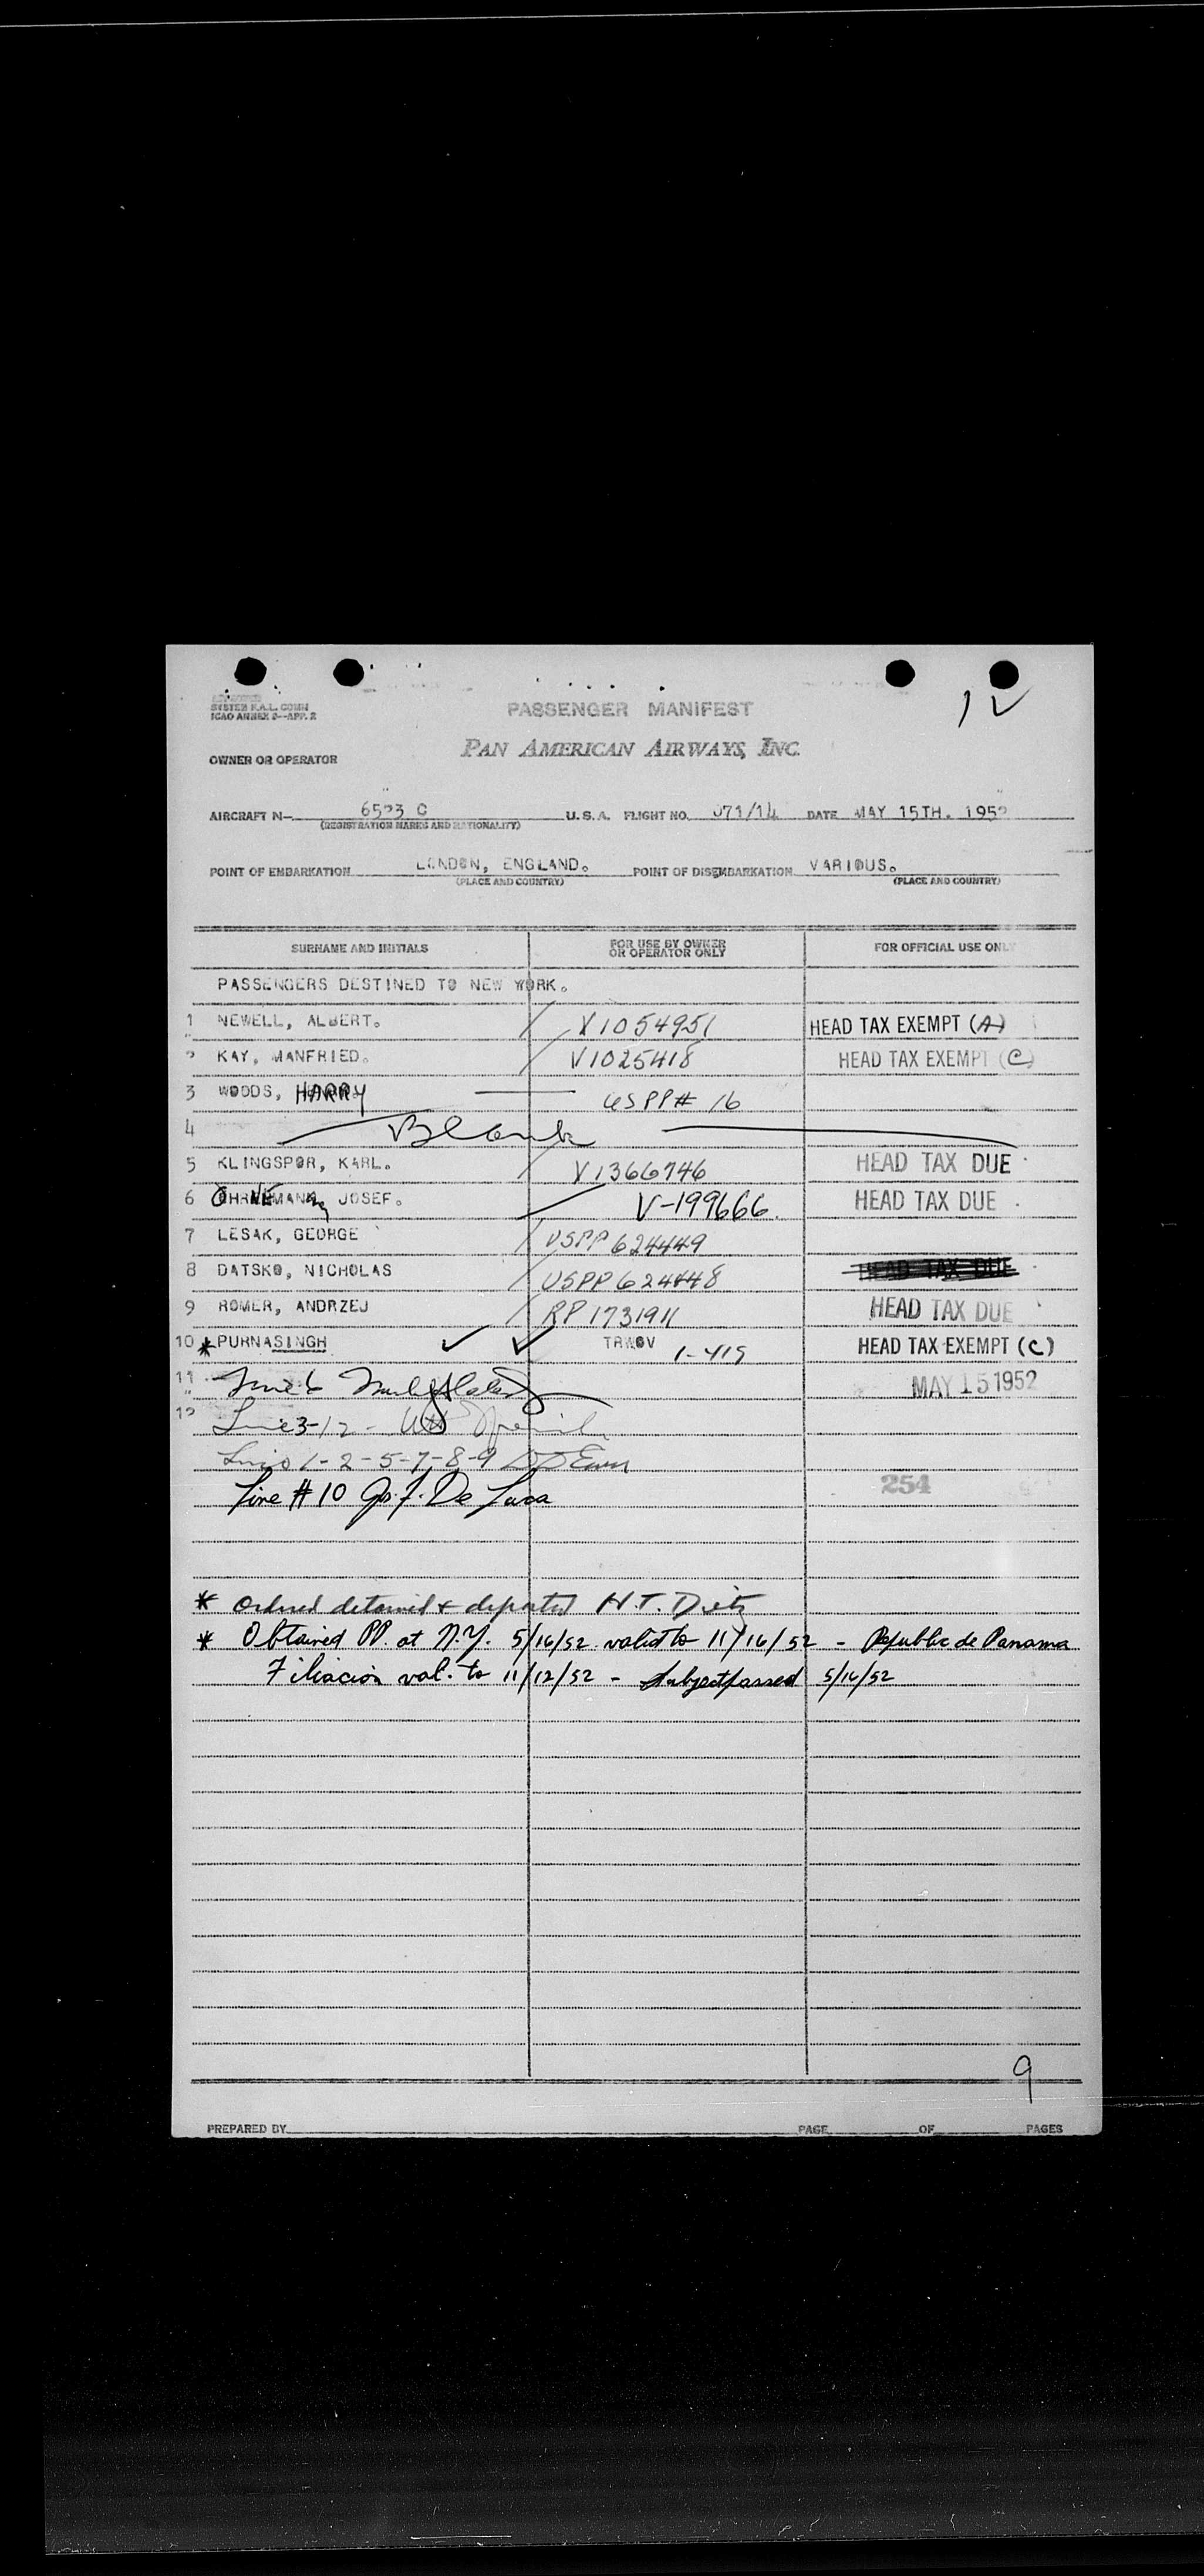 SYSTEM F.A.L. COMM
ICAO ANNEX 9--APP. 2
PASSENGER MANIFEST
12
PAN AMERICAN AIRWAYS, INC.
OWNER OR OPERATOR
AIRCRAFT N- 6523 C U.S.A. FLIGHT NO. 071/14 DATE MAY 15TH. 1952
(REGISTRATION MARKS AND NATIONALITY)
POINT OF EMBARKATION LONDON, ENGLAND. POINT OF DISEMBARKATION VARIOUS.
(PLACE AND COUNTRY) (PLACE AND COUNTRY)
SURNAME AND INITIALS FOR USE BY OWNER OR OPERATOR ONLY FOR OFFICIAL USE ONLY
PASSENGERS DESTINED TO NEW YORK.
1 NEWELL, ALBERT. V1054951 HEAD TAX EXEMPT (A)
2 KAY, MANFRIED. V1025418 HEAD TAX EXEMPT (C)
3 WOODS, HARRY USPP# 16
4 Blank
5 KLINGSPOR, KARL. V1366746 HEAD TAX DUE
6 JOSEF. V-199666. HEAD TAX DUE
7 LESAK, GEORGE USPP 624449
8 DATSKO, NICHOLAS USPP 624448 HEAD TAX DUE
9 ROMER, ANDRZEJ RP 1731911 HEAD TAX DUE
10 * PURNASINGH TRWOV 1-419 HEAD TAX EXEMPT (C)
11 Line 6 MAY 15 1952
12 Line 3-12 -
Lines 1-2-5-7-8-9
Line #10 De Luca
254
* Ordered detained & deported H.T. Dietz
* Obtained PP. at N.Y. 5/16/52 valid to 11/16/52 - Republic de Panama
Filiacion val. to 11/12/52 - Subject passed 5/16/52
9
PREPARED BY PAGE OF PAGES